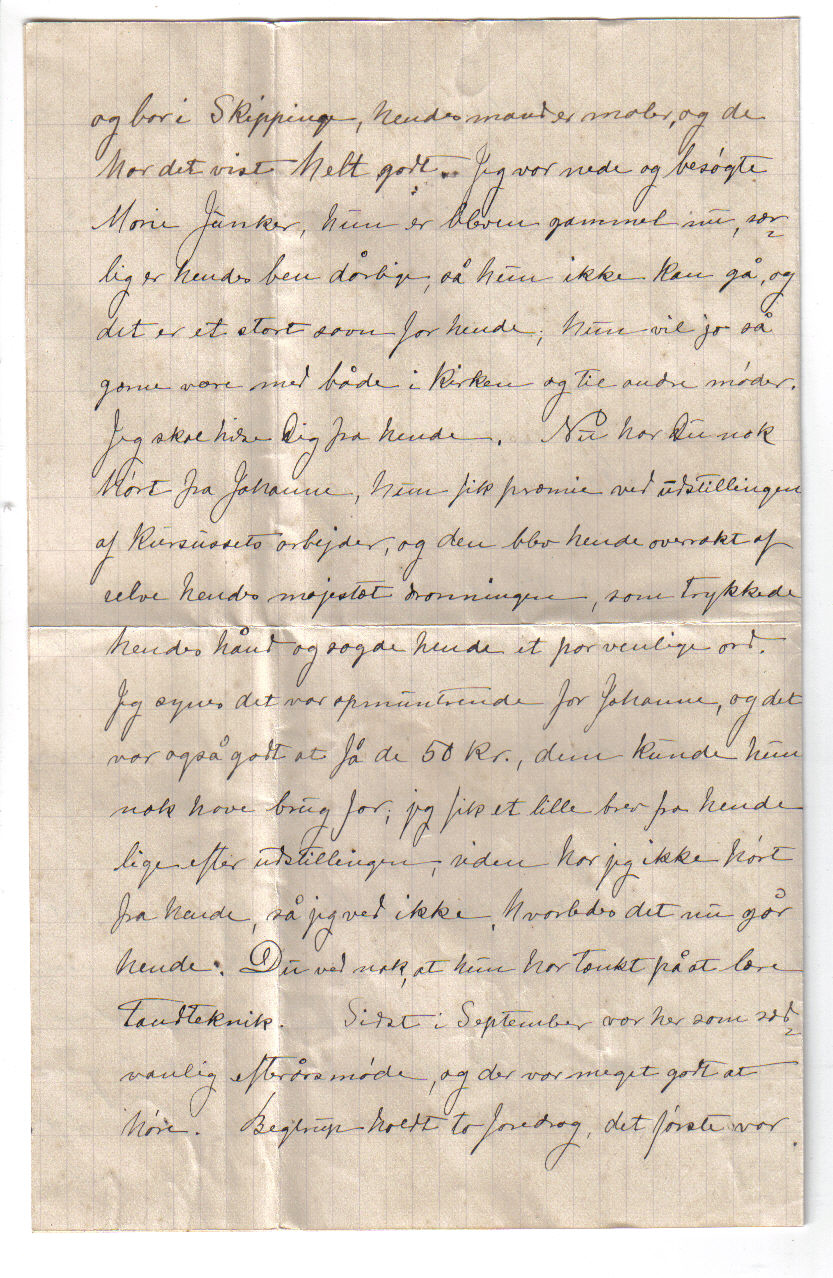 og bor i Skippinge, hendes mand er maler, og de
har det vist helt godt. Jeg var nede og besøgte
Marie Junker, hun er bleven gammel nu, sær-
lig er hendes ben dårlige, så hun ikke kan gå, og
det er et stort savn for hende, hun vil jo så
gerne være med både i kirken og til andre møder.
Jeg skal hilse Dig fra hende. Nu har Du nok
hørt fra Johanne, hun fik præmie ved udstillingen
af kursussets arbejder, og den blev hende overrakt af
selve hendes majestæt dronningen, som trykkede
hendes hånd og sagde hende et par venlige ord.
Jeg synes det var opmuntrende for Johanne, og det
var også godt at få de 50 kr., dem kunde hun
nok have brug for; jeg fik et lille brev fra hende
lige efter udstillingen, siden har jeg ikke hørt
fra hende, så jeg ved ikke, hvorledes det nu går
hende. Du ved nok, at hun har tænkt på at lære
Tandteknik. Sidst i September var her som sæd-
vanlig efterårsmøde, og der var meget godt at
høre. Begtrup holdt to foredrag, det første var